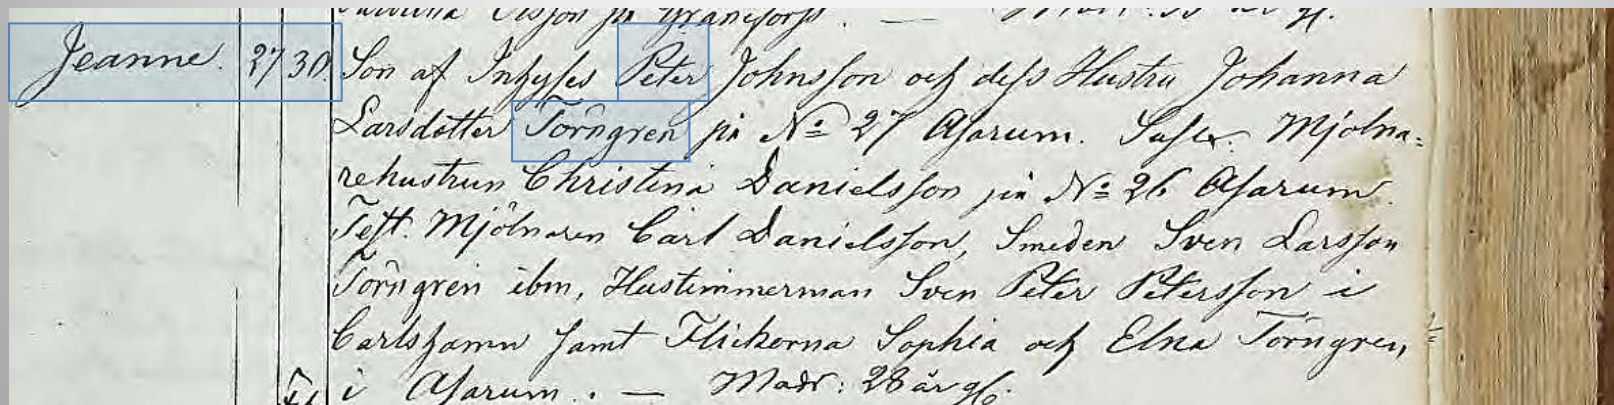 Olsson på Granefors. — Modr: 33 år gl.
Jeanne. 27 30. Son af Inhyses Peter Johnsson och dess Hustru Johanna
Larsdotter Törngren på No 27 Asarum. Susc. Mjölna-
rehustrun Christina Danielsson på No 26 Asarum.
Test. Mjölnaren Carl Danielsson, Smeden Sven Larsson
Törngren ibm, Hustimmerman Sven Peter Petersson i
Carlshamn samt Flickorna Sophia och Elna Törngren,
i Asarum. — Modr: 28 år gl.